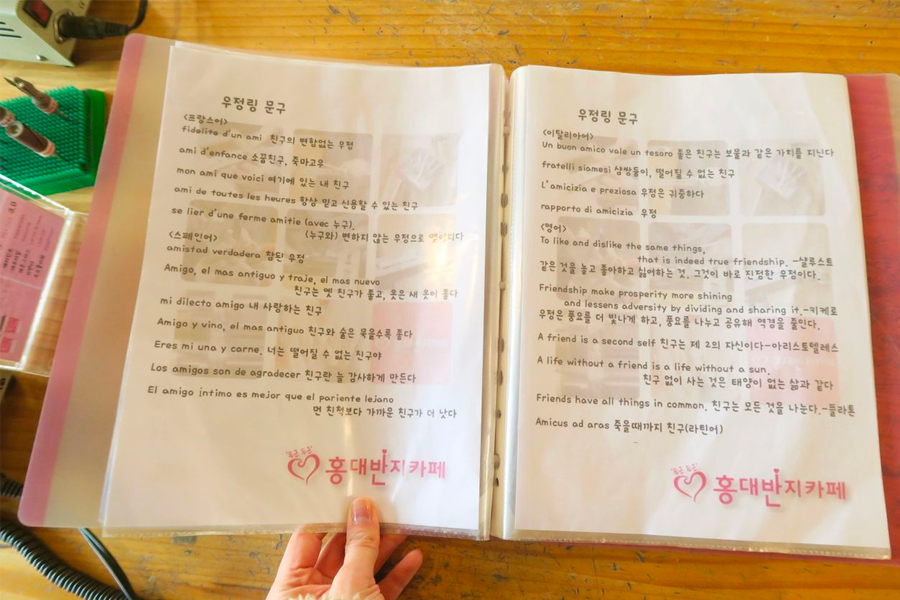 우정링 문구
<프랑스어>
fidelite d'un ami 친구의 변함없는 우정
ami d'enfance 소꿉친구, 죽마고우
mon ami que voici 여기에 있는 내 친구
ami de toutes les heures 항상 믿고 신용할 수 있는 친구
se lier d'une ferme amitie (avec 누구).
(누구와) 변하지 않는 우정으로 맺어지다
<스페인어>
amistad verdadera 참된 우정
Amigo, el mas antiguo y traje, el mas nuevo
친구는 옛 친구가 좋고, 옷은 새 옷이 좋다
mi dilecto amigo 내 사랑하는 친구
Amigo y vino, el mas antiguo 친구와 술은 묵을수록 좋다
Eres mi una y carne. 너는 떨어질 수 없는 친구야
Los amigos son de agradecer 친구란 늘 감사하게 만든다
El amigo jntimo es mejor que el pariente lejano
먼 친척보다 가까운 친구가 더 낫다
"두근 두근"
홍대반지카페
우정링 문구
<이탈리아어>
Un buon amico vale un tesoro 좋은 친구는 보물과 같은 가치를 지닌다
fratelli siamesi 샴쌍둥이, 떨어질 수 없는 친구
L'amicizia e preziosa 우정은 귀중하다
rapporto di amicizia 우정
<영어>
To like and dislike the same things,
that is indeed true friendship. -샬루스트
같은 것을 놓고 좋아하고 싫어하는 것, 그것이 바로 진정한 우정이다.
Friendship make prosperity more shining
and lessens adversity by dividing and sharing it.-키케로
우정은 풍요를 더 빛나게 하고, 풍요를 나누고 공유해 역경을 줄인다.
A friend is a second self 친구는 제 2의 자신이다-아리스토텔레스
A life without a friend is a life without a sun.
친구 없이 사는 것은 태양이 없는 삶과 같다
Friends have all things in common. 친구는 모든 것을 나눈다.-플라톤
Amicus ad aras 죽을때까지 친구(라틴어)
"두근 두근"
홍대반지카페